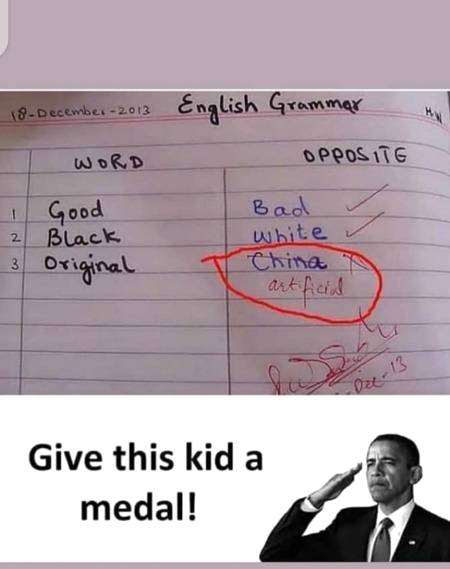 18-December-2013 English Grammar H.W
WORD OPPOSITE
1 Good Bad
2 Black White
3 Original China
artificial
Dec-13
Give this kid a
medal!